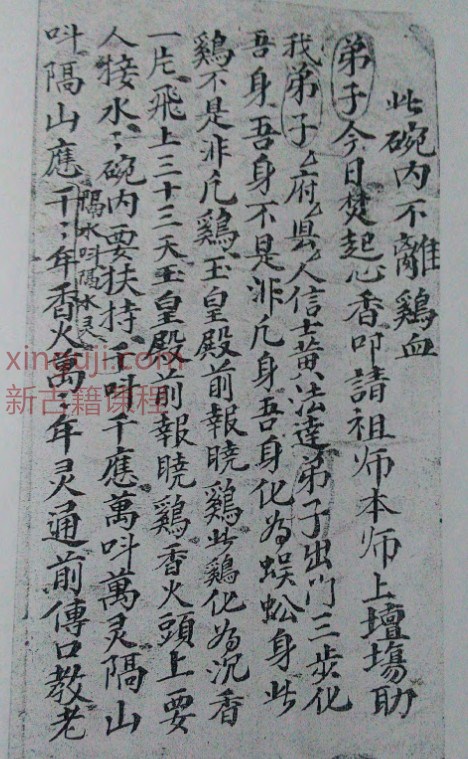 此碗内不離鷄血
弟子今日焚起心香叩請祖师本师上壇塲助
我弟子厶府厶县厶人信士黄法達弟子出门三步化
吾身吾身不是非凢身吾身化为蜈蚣身此
鷄不是非凢鷄玉皇殿前報曉鷄此鷄化为沉香
一片飛上三十三天玉皇殿前報曉鷄香火頭上要
人接水〻碗内要扶持千呌千應萬呌萬灵隔山
呌隔山應千〻年香火萬〻年灵通前傳口教老
隔水呌隔水灵
xinguji.com
新古籍课程